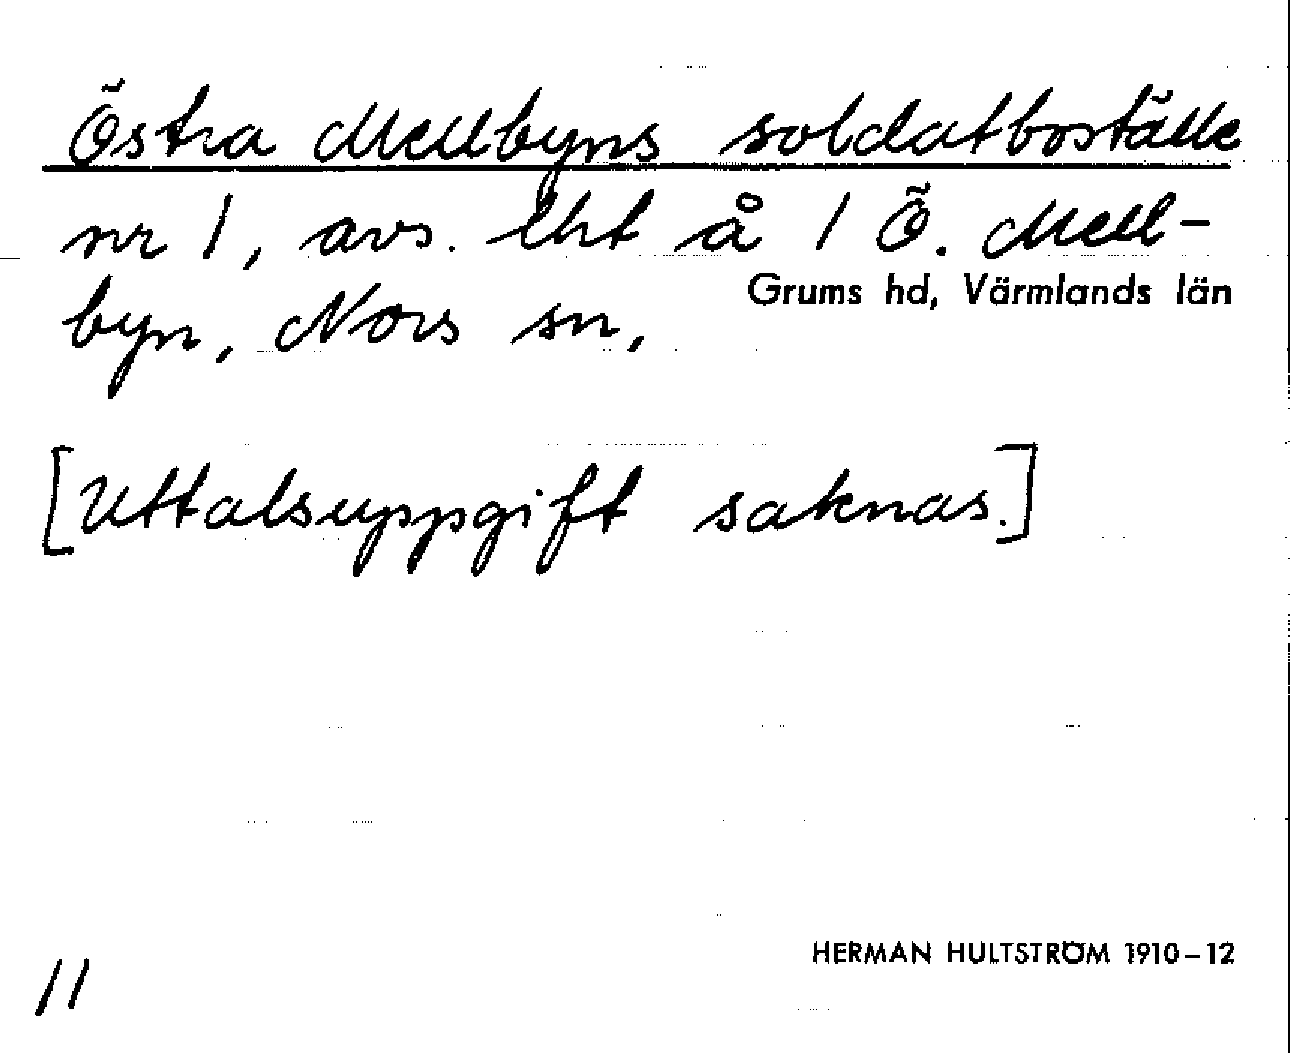 Östra Mellbyns soldatboställe
nr 1, avs. lht å 1 Ö. Mell-
byn, Nors sn,
Grums hd, Värmlands län
[Uttalsuppgift saknas.]
HERMAN HULTSTRÖM 1910–12
11